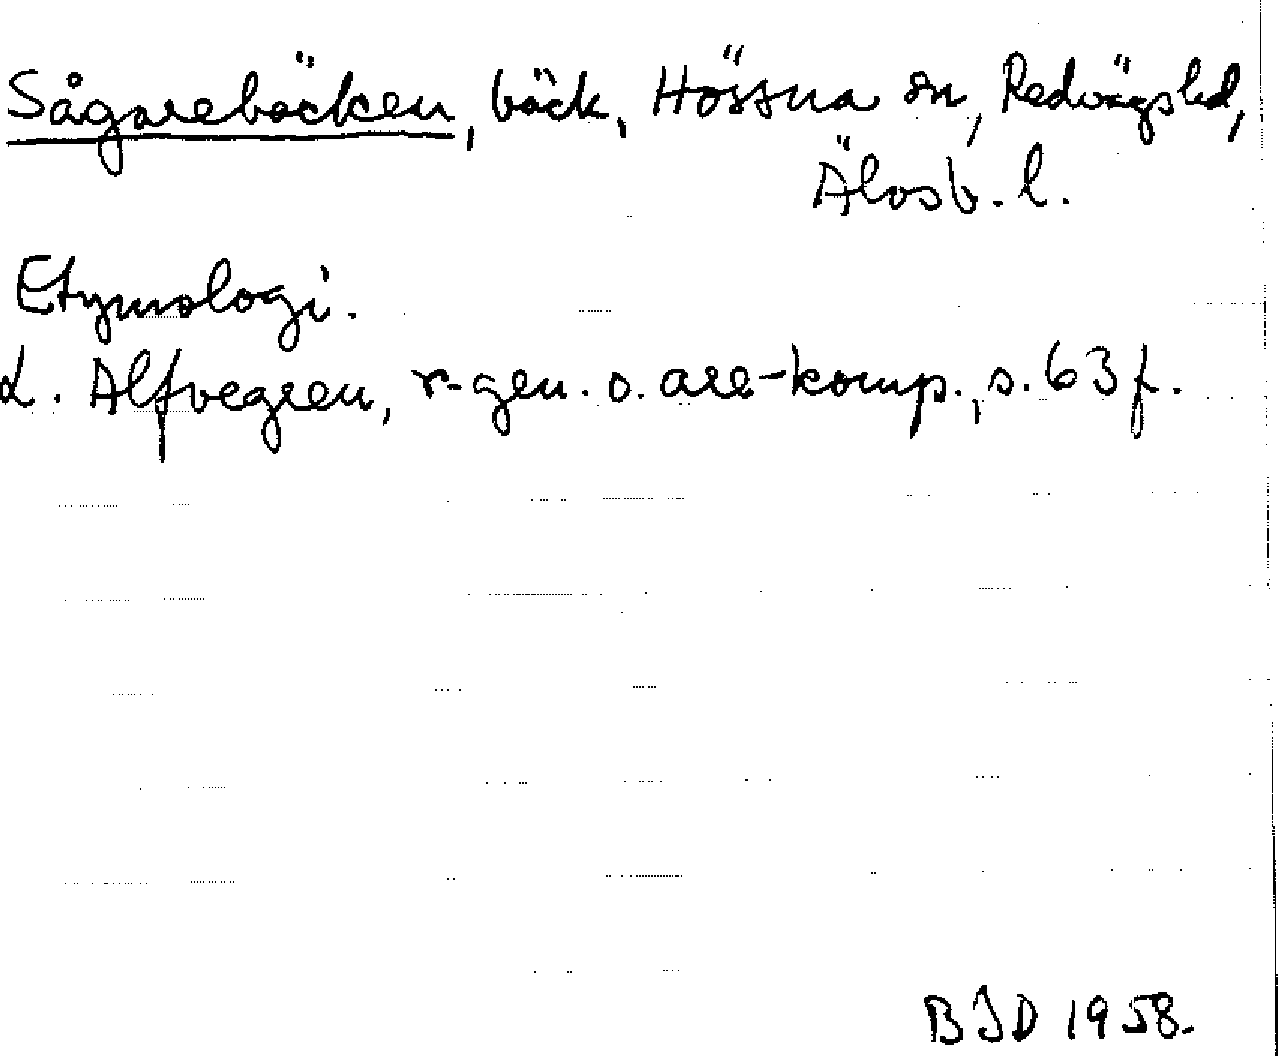 Sågarebäcken, bäck, Hössna sn, Redvägs hd,
Älvsb. l.
Etymologi.
L. Alfvegren, r-gen. o. are-komp., s. 63 f.
BJD 1958.